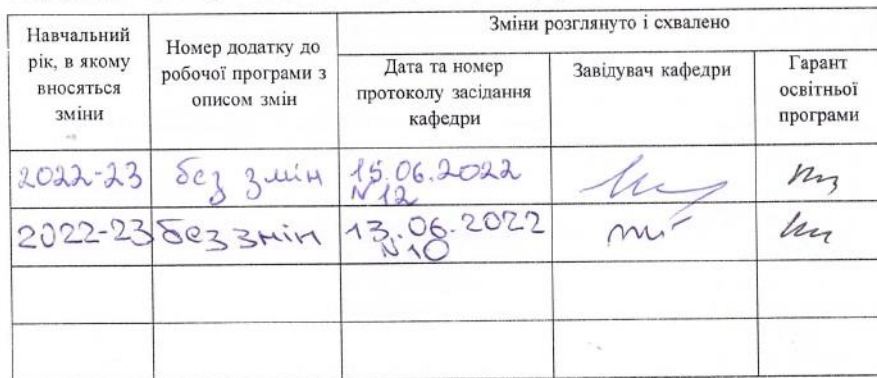 Навчальний рік, в якому вносяться зміни
Номер додатку до робочої програми з описом змін
Зміни розглянуто і схвалено
Дата та номер протоколу засідання кафедри
Завідувач кафедри
Гарант освітньої програми
2022-23 без змін 15.06.2022
№12
2022-23 без змін 13.06.2022
№10